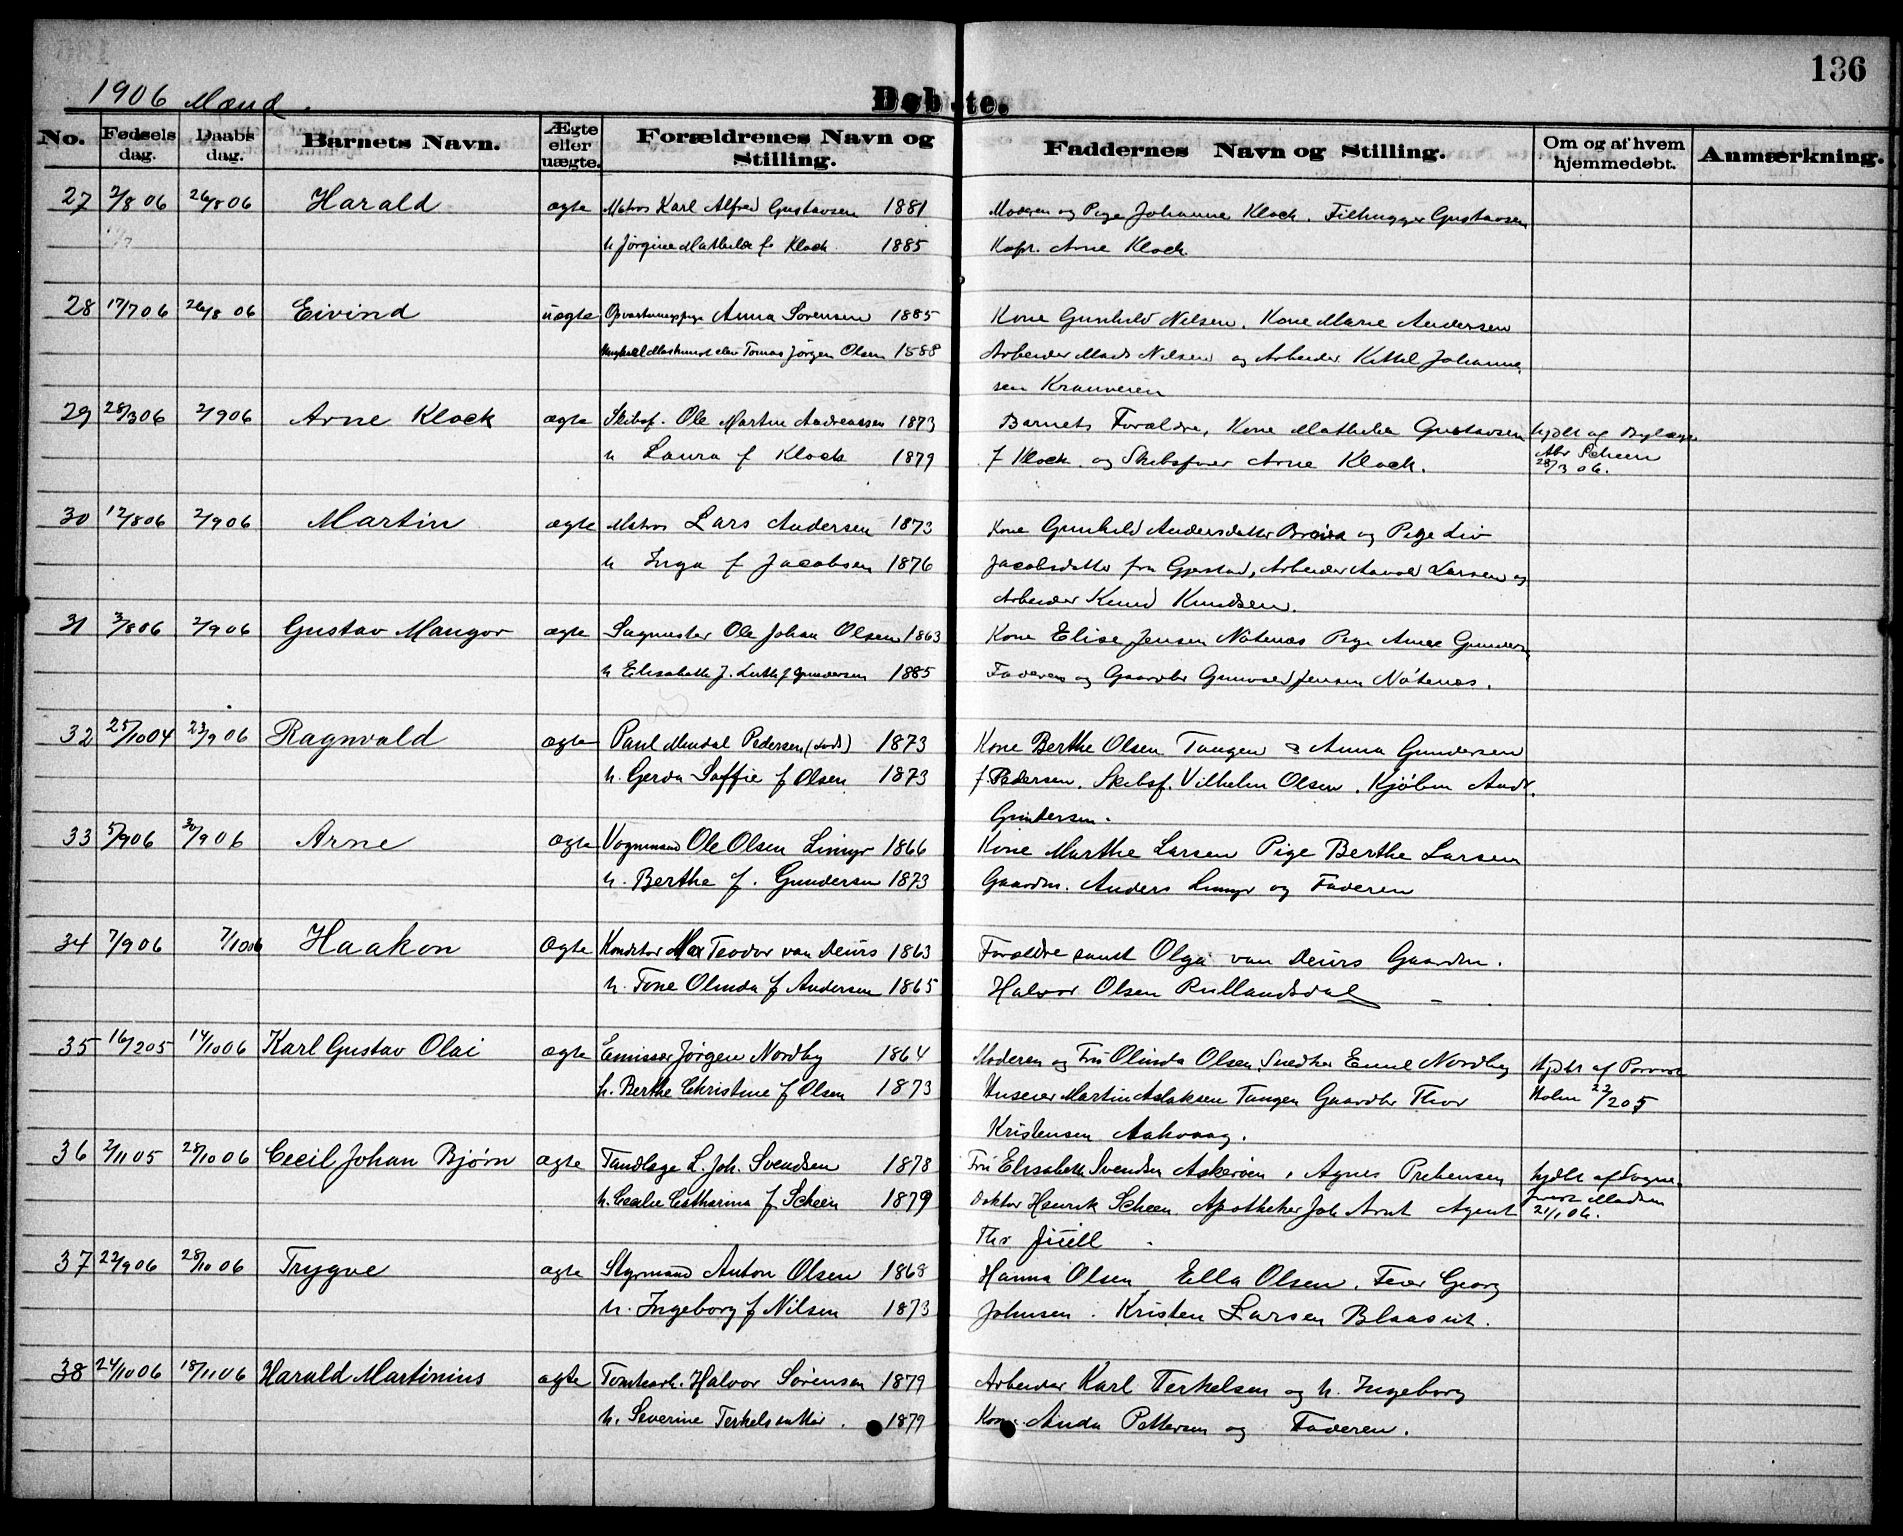 136
1906 Mænd.
Døbte.
No. Fødsels dag. Daabs dag. Barnets Navn. Ægte eller uægte. Forældrenes Navn og Stilling. Faddernes Navn og Stilling. Om og af hvem hjemmedøbt. Anmærkning.
27 2/8 06 26/8 06 Harald ægte Matros Karl Alfred Gustavsen 1881 Moderen og Pige Johanne Klock. Filhugger Gustavsen
h Jørgine Mathilde f Klock 1885 Kapt. Arne Klock.
28 17/7 06 26/8 06 Eivind uægte Opvartningspige Anna Sørensen 1885 Kone Gunhild Nilsen. Kone Marie Andersen
Tomas Jørgen Olsen 1588 Arbeider Mads Nilsen og Arbeider Kittel Johanne
sen Kranveien
29 28/3 06 2/9 06 Arne Klock ægte Skibsf. Ole Martin Andreassen 1873 Barnets Forældre, Kone Mathilde Gustavsen hjdbt af
h Laura f Klock 1879 f Klock. og Skibsfører Arne Klock. Scheen
28/3 06.
30 12/8 06 2/9 06 Martin ægte Matros Lars Andersen 1873 Kone Gunhild Andersdatter og Pige Liv
h Inga f Jacobsen 1876 Jacobsdatter fra Gjestad, Arbeider Larsen og
Arbeider Knud Knudsen.
31 3/8 06 2/9 06 Gustav Mangor ægte Sagmester Ole Johan Olsen 1863 Kone Elise Jensen Nøtenes Pige Anne Gundersn
h Elisabeth J. f Gundersen 1885 Faderen og Gaardbr Jensen Nøtenes.
32 25/10 04 23/9 06 Ragnvald ægte Paul Pedersen (død) 1873 Kone Berthe Olsen Tangen & Anna Gundersen
h. Gerda Soffie f Olsen 1873 f. Pedersen. Skibsf. Vilhelm Olsen. Kjøbm Andr.
Gundersen.
33 5/9 06 30/9 06 Arne ægte Vognmand Ole Olsen Limyr 1866 Kone Marthe Larsen Pige Berthe Larsen
h. Berthe f. Gundersen 1873 Gaardm. Anders Limyr og Faderen
34 7/9 06 7/10 06 Haakon ægte Konditor Max Teodor van Deurs 1863 Forældre samt Olga van Deurs Gaardm.
h. Tone Olinda f Andersen 1865 Halvor Olsen Rullandsdal
35 16/2 05 14/10 06 Karl Gustav Olai ægte Emissær Jørgen Nordby 1864 Moderen og Fru Olinda Olsen, Snedker Emil Nordby Hjdbt af Provst
h. Berthe Christine f Olsen 1873 Huseier Martin Aslaksen Tangen Gaardbr Thor Holm 22/2 05
Kristensen Aakvaag.
36 2/11 05 28/10 06 Cecil Johan Bjørn ægte Tandlæge L. Joh. Svendsen 1878 Fru Elisabeth Svendsen Askerøen, Agnes Prebensen hjdbt af Sogne-
h. Cecilie Catharina f Scheen 1879 Doktor Henrik Scheen Apotheker Joh Arnt Agent præst Madsen
Thv Juell. 21/1 06.
37 22/9 06 28/10 06 Trygve ægte Styrmand Anton Olsen 1868 Hanna Olsen Ella Olsen. Feier Georg
h. Ingeborg f Nilsen 1873 Johnsen. Kristen Larsen Blaasut.
38 24/10 06 18/11 06 Harald Martinius ægte Tomtearb. Halvor Sørensen 1879 Arbeider Karl Terkelsen og h. Ingeborg
h. Severine Terkelsdatter. 1879 Kone Anda Pettersen og Faderen.